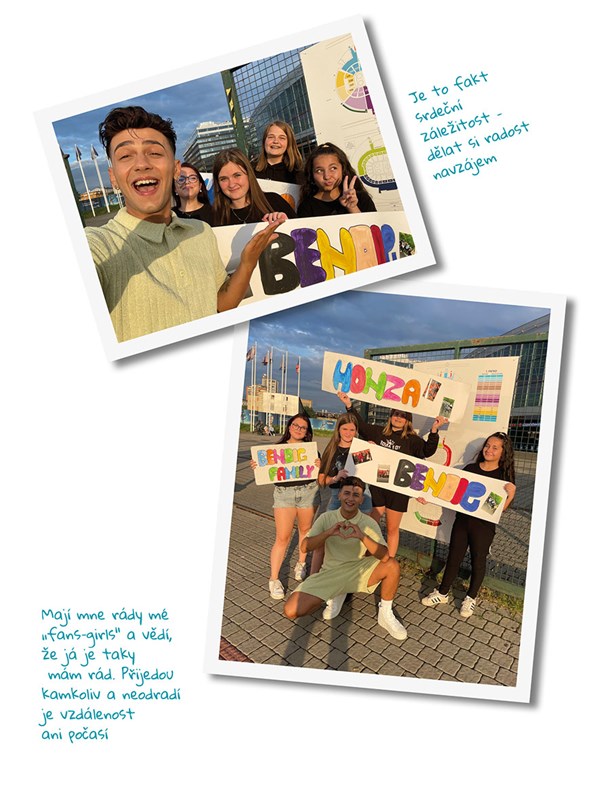 Je to fakt
srdeční
záležitost -
dělat si radost
navzájem
BENDIG
HONZA
BENDIG
FAMILY
BENDIG
Mají mne rády mé
„fans-girls" a vědí,
že já je taky
mám rád. Přijedou
kamkoliv a neodradí
je vzdálenost
ani počasí